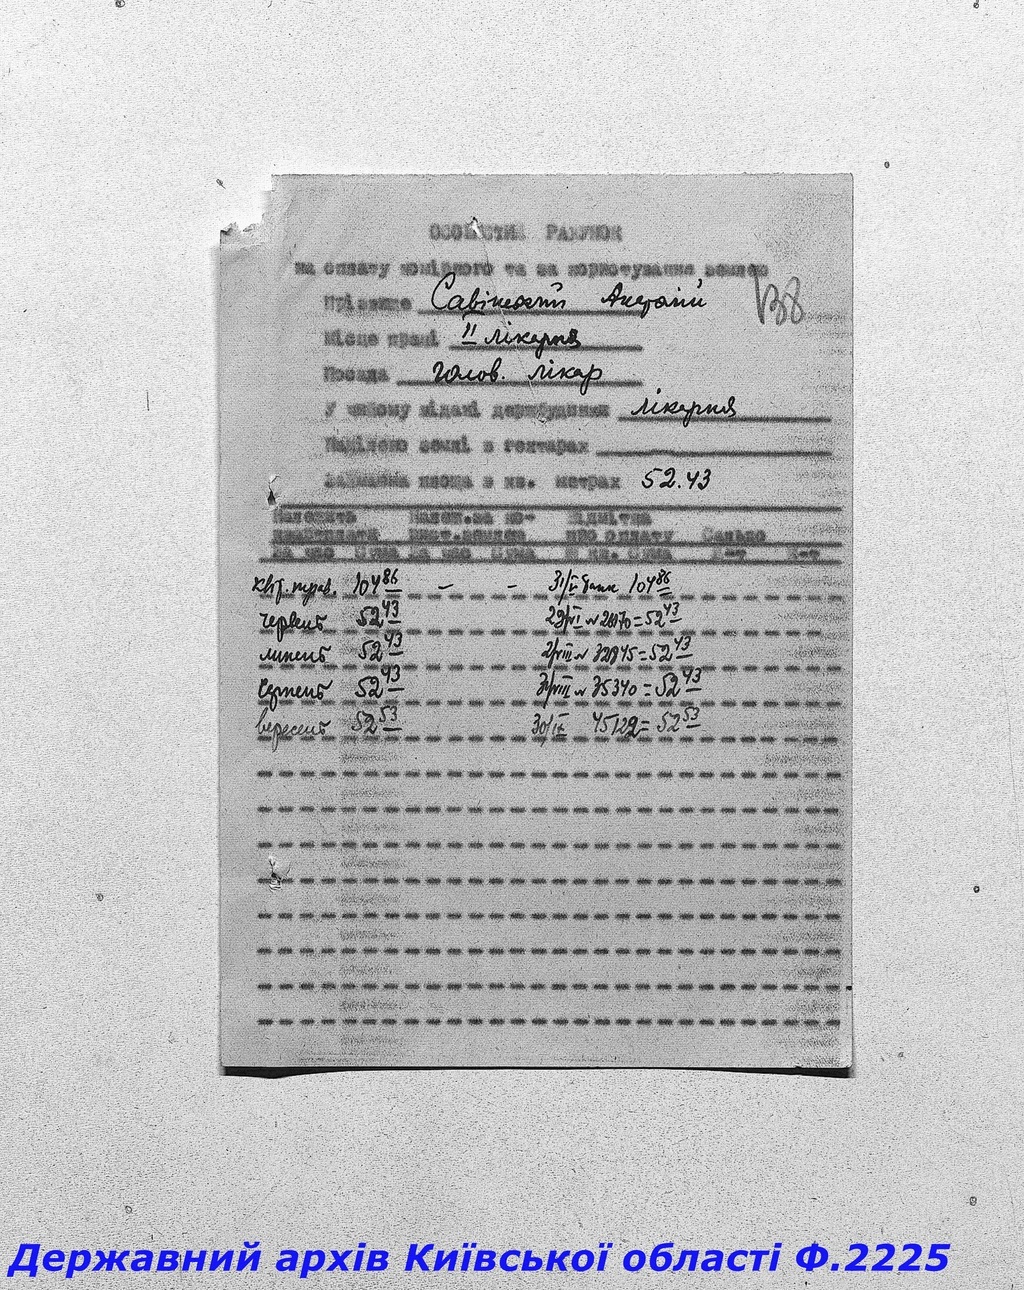 ОСОБИСТИЙ РАХУНОК
на оплату комірного та за користування землею
138
Прізвище Савінський Анатолій
Місце праці II лікарня
Посада голов. лікар
У чийому віданні держбудинки лікарня
Наділено землі в гектарах
Займана площа в кв. метрах 52.43
Належить Належ.за ко- Відмітка
квартплати рист.землею про оплату Сальдо
За час Сума За час Сума № кв. Сума Д-т К-т
квт. трав. 104 86 – – 31/V банк 104 86
червень 52 43 29/VI № 28170 = 52 43
липень 52 43 = 52 43
серпень 52 43 № 35340 = 52 43
вересень 52 53 30/IX 45122 = 52 53
Державний архів Київської області Ф.2225